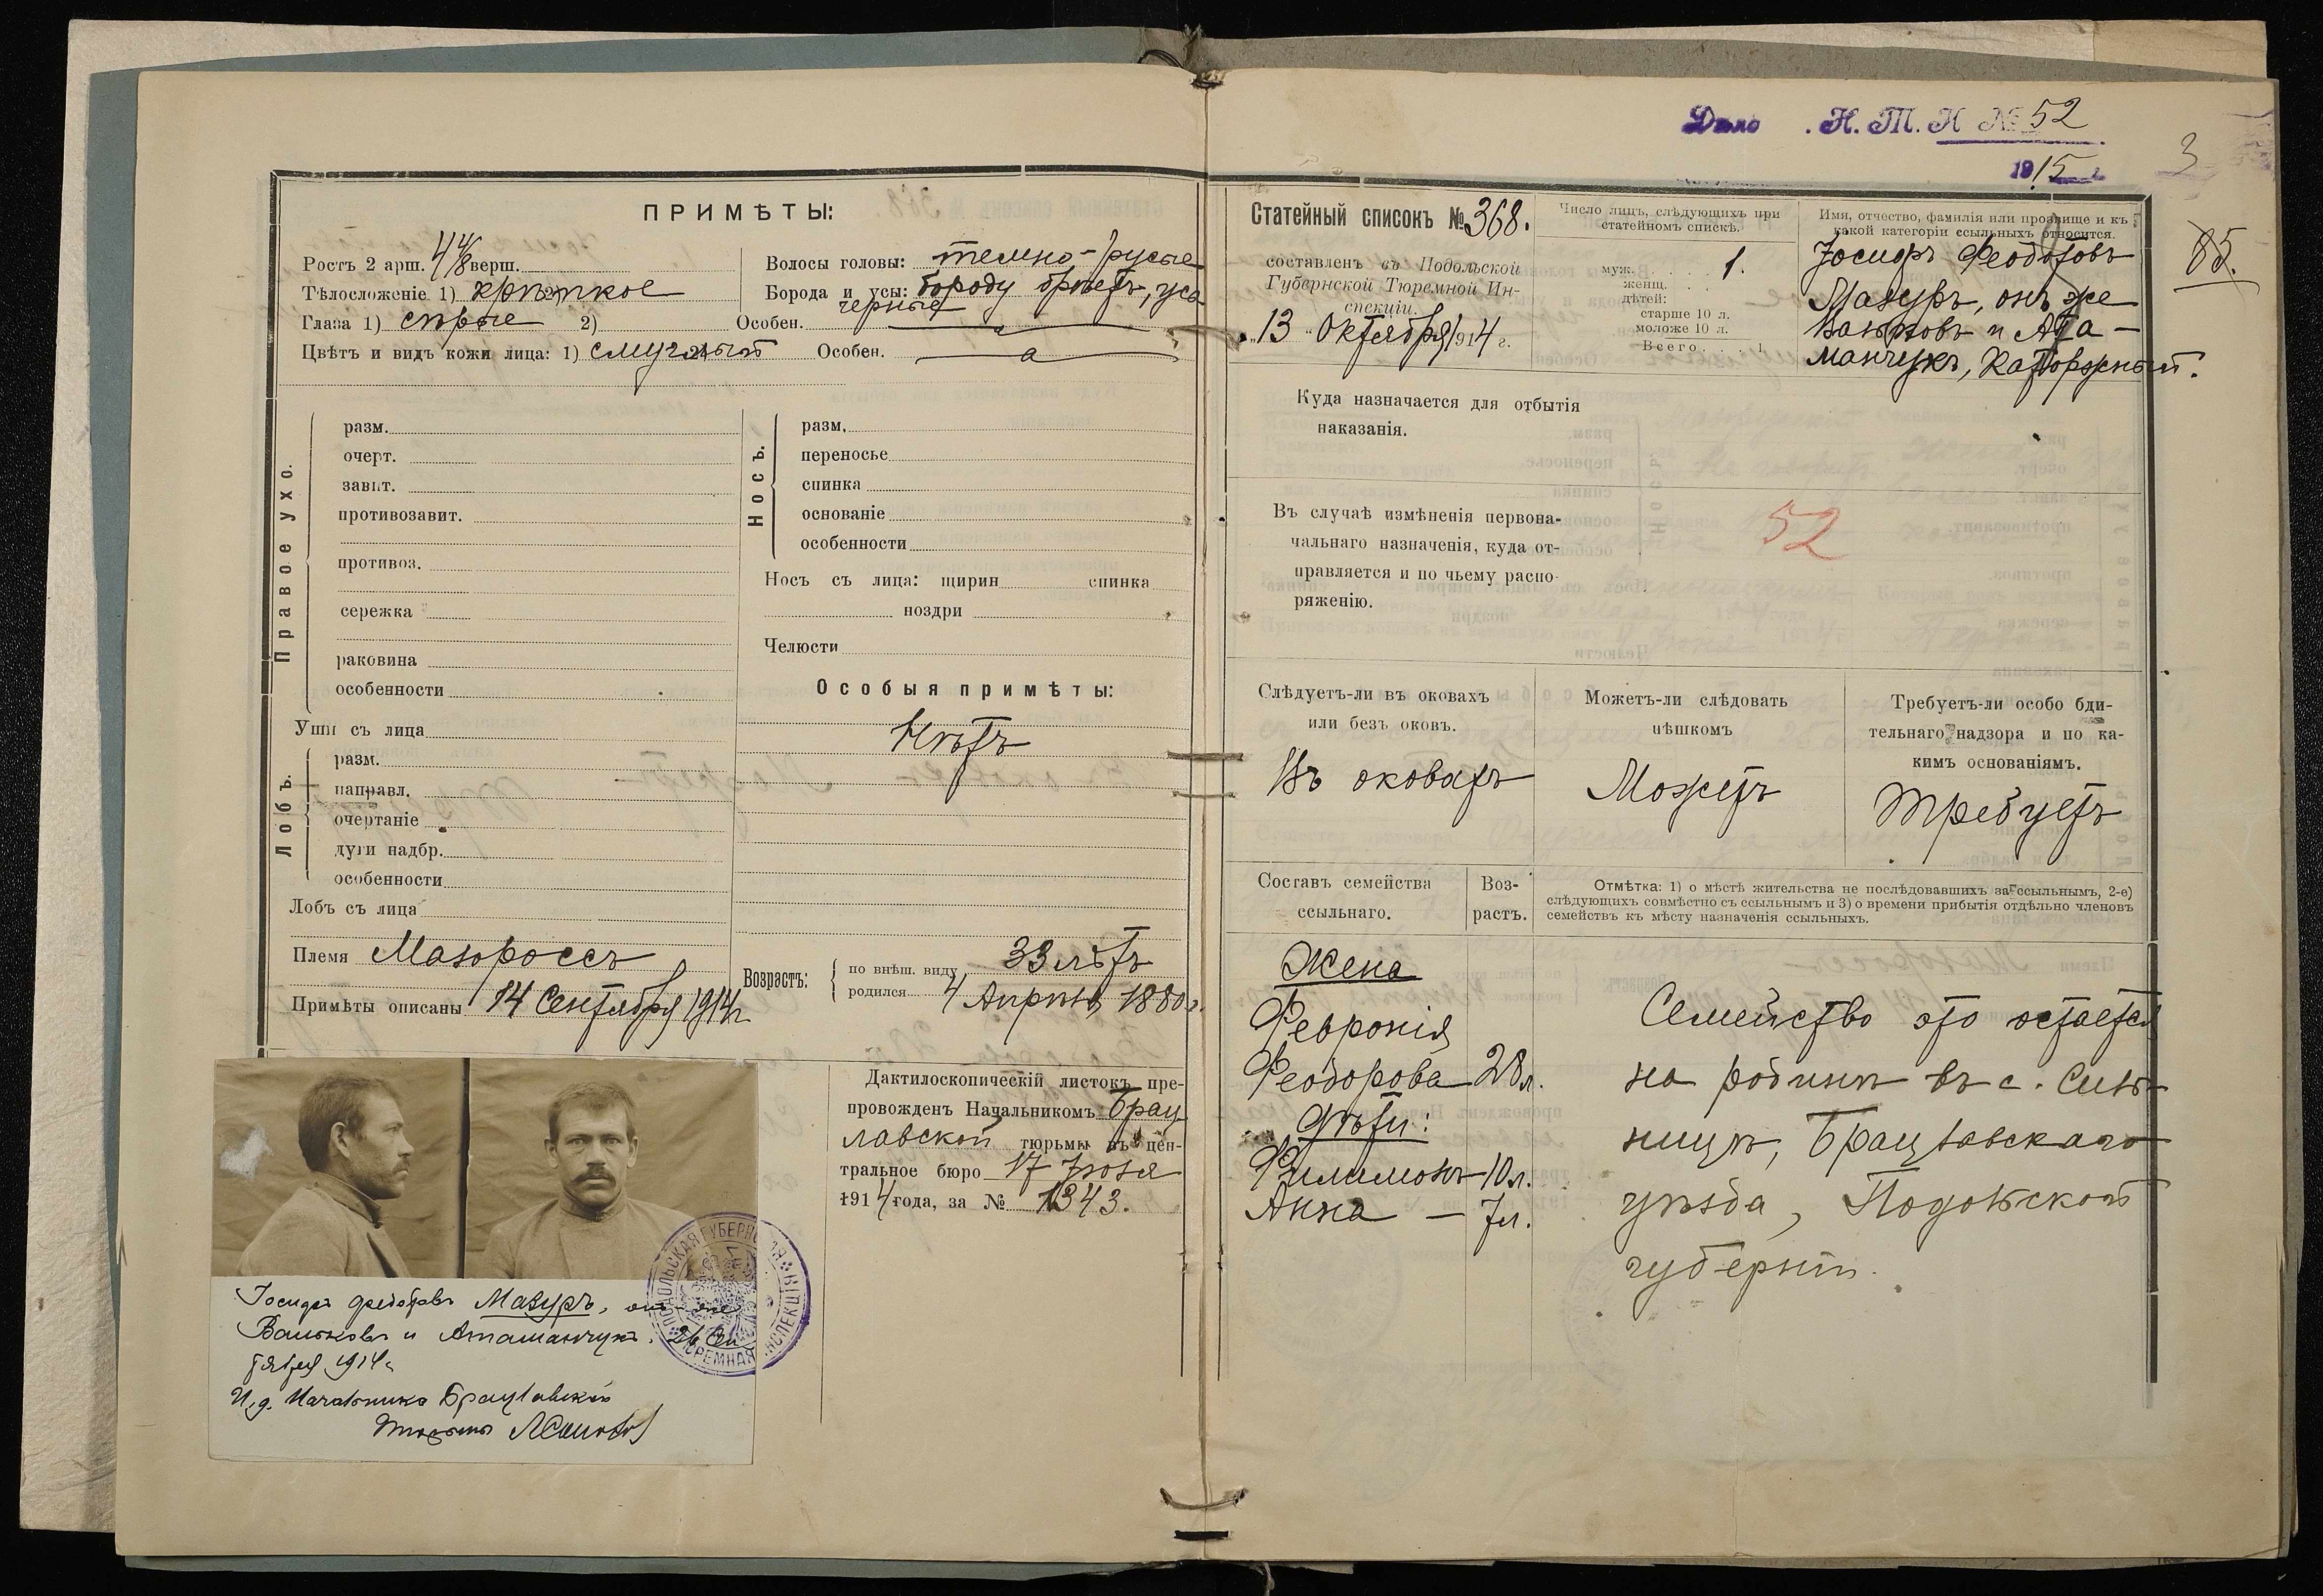 ПРИМѢТЫ:
Ростъ 2 арш. 4 4/8 верш.
Тѣлосложеніе 1) крѣпкое 2)
Глаза 1) сѣрые 2) Особен.
Цвѣтъ и видъ кожи лица: 1) смуглый 2) Особен.
Волосы головы: темно-русые
Борода и усы: бороду брѣетъ, усы
черные
Правое ухо.
разм.
очерт.
завит.
противозавит.
противоз.
сережка
раковина
особенности
Уши съ лица
Лобъ.
разм.
направл.
очертаніе
дуги надбр.
особенности
Лобъ съ лица
Племя Малороссъ
Примѣты описаны 14 Сентября 1914 г.
Носъ.
разм.
переносье
спинка
основаніе
особенности
Носъ съ лица: ширин спинка
ноздри
Челюсти
Особыя примѣты:
Нѣтъ
Возрастъ:
по внѣш. виду 33 лѣтъ
родился 4 Апрѣля 1880 г.
Дактилоскопическій листокъ пре-
провожденъ Начальникомъ Брац
лавской тюрьмы въ цен-
тральное бюро 17 Іюля
1914 года, за № 1343.
Іосифъ Федотовъ Мазуръ, онъ же
Вальковъ и Атаманчукъ. 26 Сен
тября 1914 г.
И. д. Начальника Брацлавской
Тюрьмы
ПОДОЛЬСКАЯ ГУБЕРНСКАЯ ТЮРЕМНАЯ ИНСПЕКЦІЯ
Дѣло . Н. Т. Н № 52
1915 г.
3
85.
Статейный списокъ № 368.
составленъ въ Подольской
Губернской Тюремной Ин-
спекціи.
„13" Октября 1914 г.
Число лицъ, слѣдующихъ при
статейномъ спискѣ.
муж. . . . 1.
женщ. . .
дѣтей:
старше 10 л.
моложе 10 л.
Всего . . . 1
Имя, отчество, фамилія или прозвище и къ
какой категоріи ссыльныхъ относится.
Іосифъ Феодотовъ
Мазуръ, онъ же
Вальковъ и Ата-
манчукъ, Каторжный.
Куда назначается для отбытія
наказанія.
Въ случаѣ измѣненія первона-
чальнаго назначенія, куда от-
правляется и по чьему распо-
ряженію.
52
Слѣдуетъ-ли въ оковахъ
или безъ оковъ.
Въ оковахъ
Можетъ-ли слѣдовать
пѣшкомъ
Можетъ
Требуетъ-ли особо бди-
тельнаго надзора и по ка-
кимъ основаніямъ.
Требуетъ
Составъ семейства
ссыльнаго.
Воз-
растъ.
Отмѣтка: 1) о мѣстѣ жительства не послѣдовавшихъ за ссыльнымъ, 2-е)
слѣдующихъ совмѣстно съ ссыльнымъ и 3) о времени прибытія отдѣльно членовъ
семействъ къ мѣсту назначенія ссыльныхъ.
Жена
Февронія
Феодорова 28 л.
Дѣти:
Филимонъ 10 л.
Анна — 7 л.
Семейство это остается
на родинѣ въ с. Силь
ницѣ, Брацлавскаго
уѣзда, Подольской
губерніи.